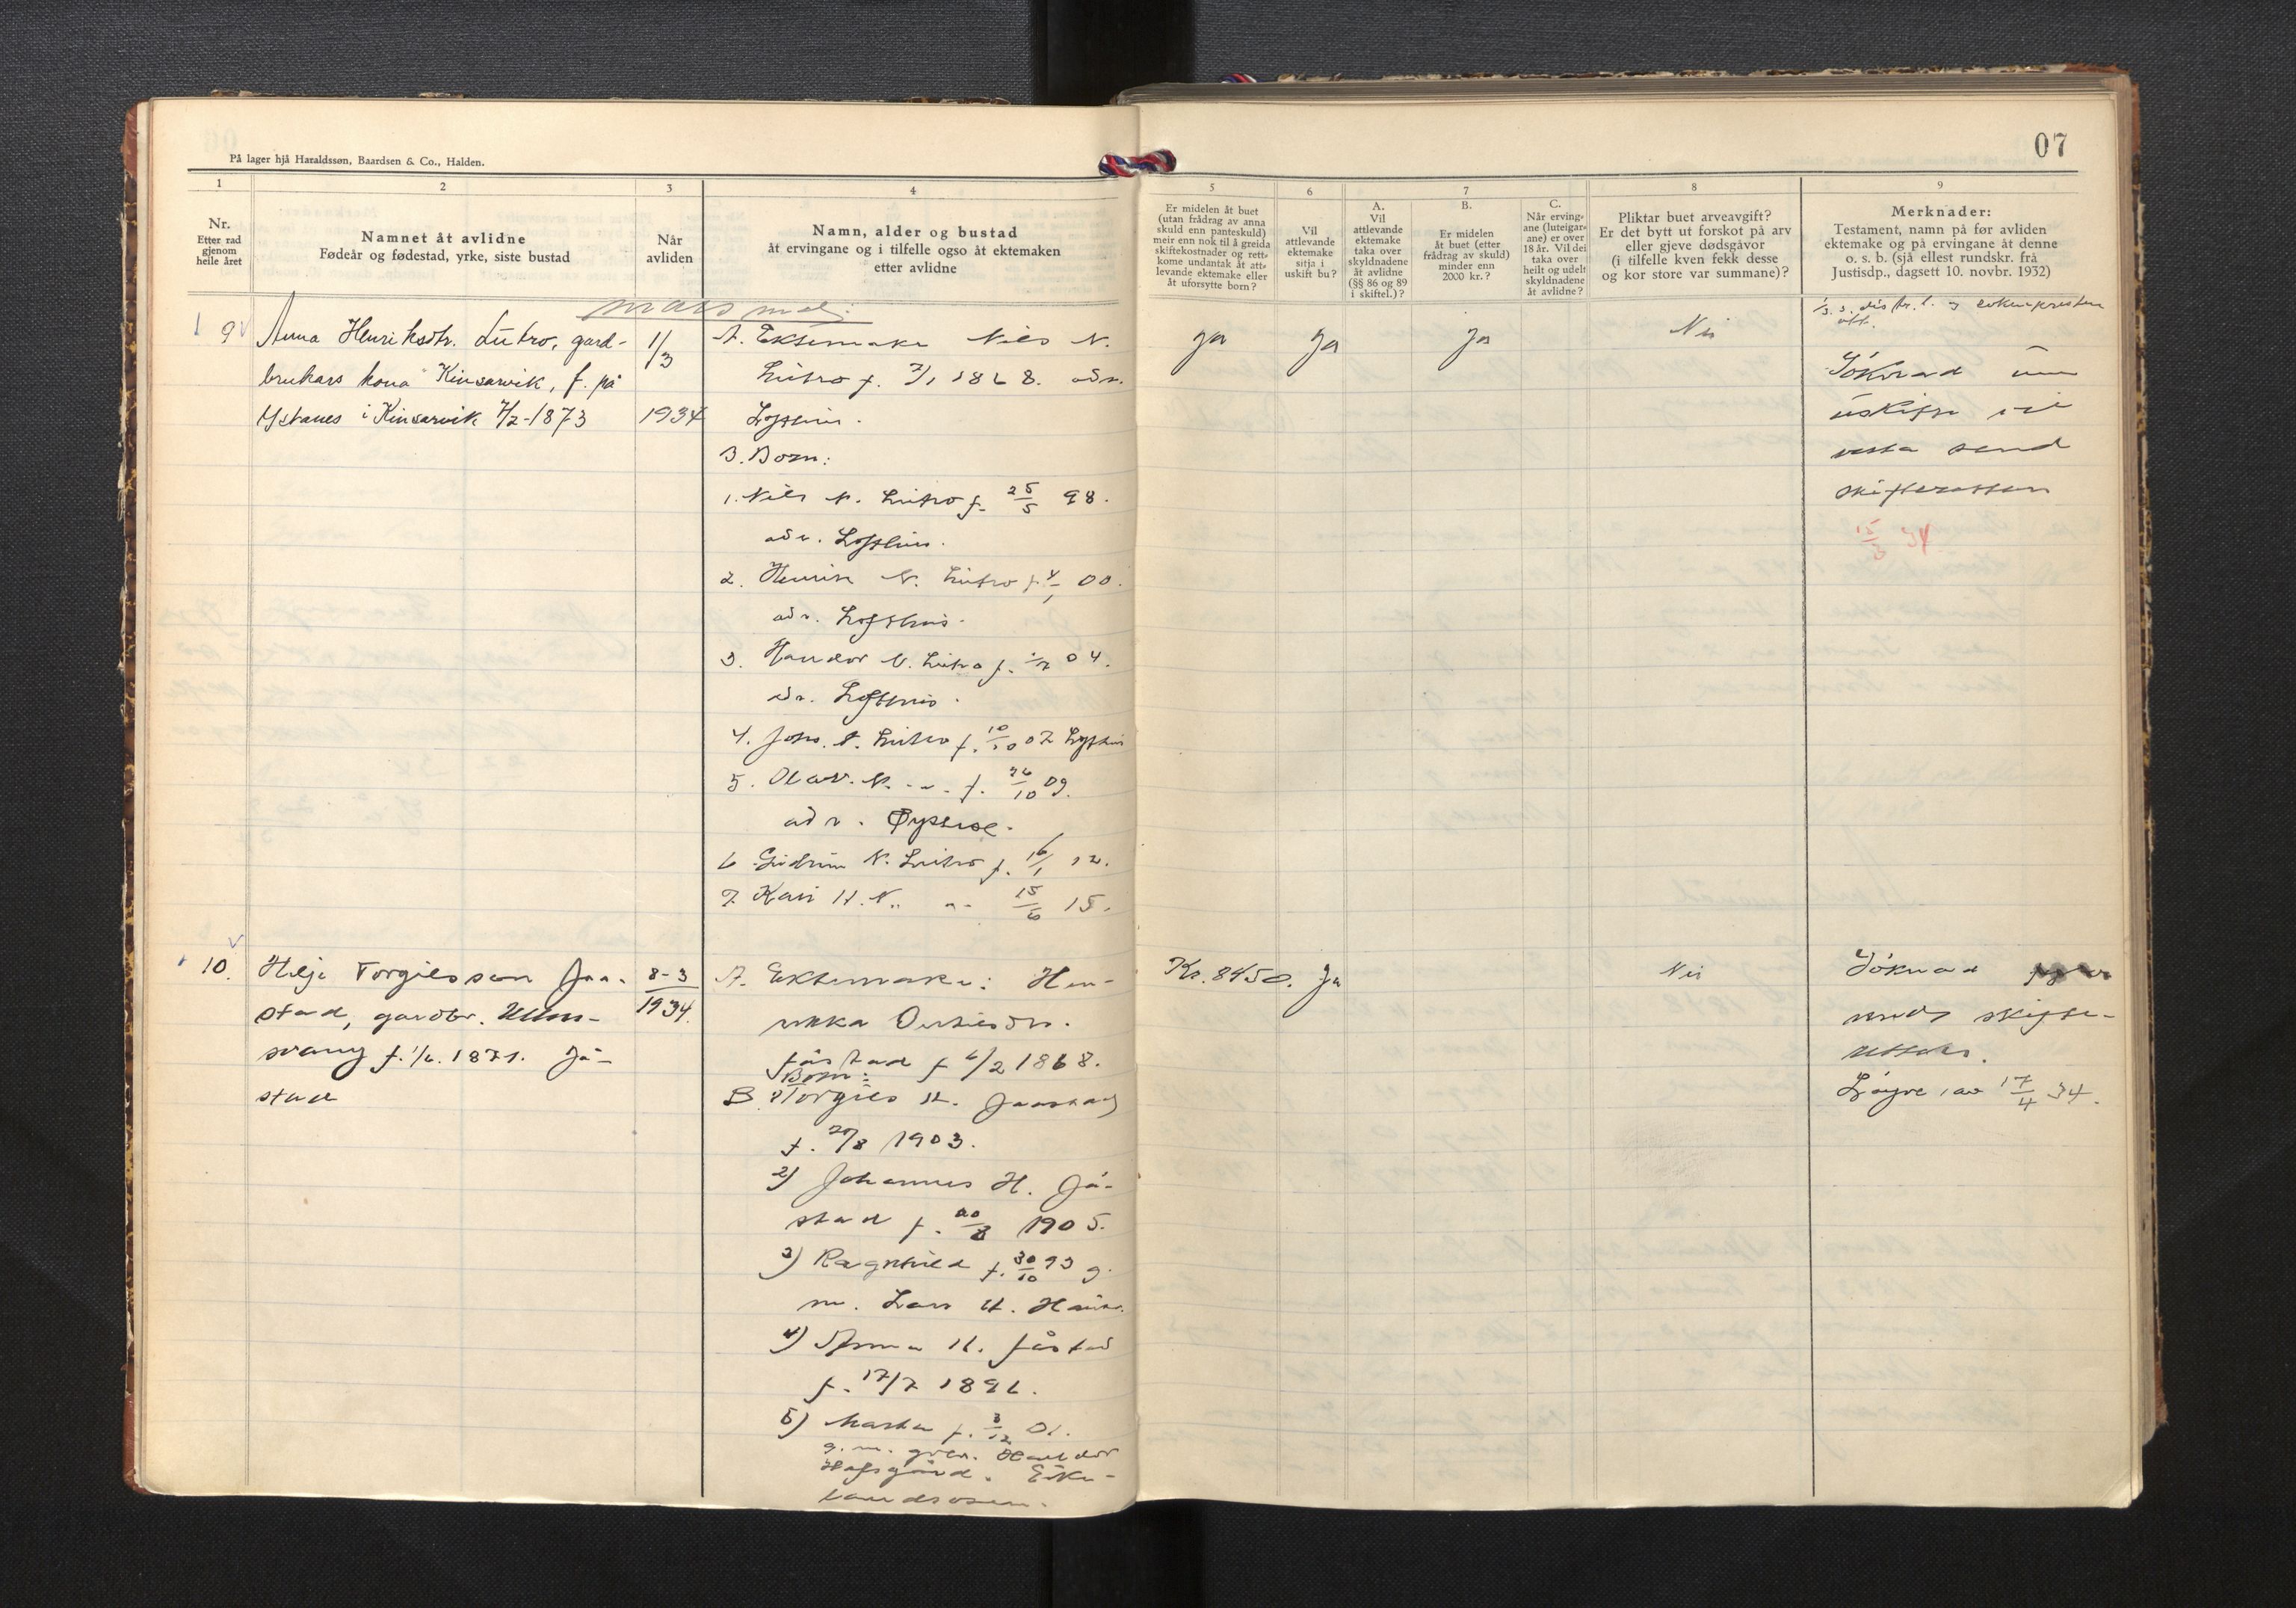 På lager hjå Haraldssøn, Baardsen & Co., Halden.
07
1
Nr.
Etter rad
gjenom
heile året
2
Namnet åt avlidne
Fødeår og fødestad, yrke, siste bustad
3
Når
avliden
4
Namn, alder og bustad
åt ervingane og i tilfelle ogso åt ektemaken
etter avlidne
5
Er midelen åt buet
(utan frådrag av anna
skuld enn panteskuld)
meir enn nok til å greida
skiftekostnader og rett-
kome undantak åt att-
levande ektemake eller
åt uforsytte born?
6
Vil
attlevande
ektemake
sitja i
uskift bu?
7
A.
Vil
attlevande
ektemake
taka over
skyldnadene
åt avlidne
(§§ 86 og 89
i skiftel.)?
B.
Er midelen
åt buet (etter
frådrag av skuld)
minder enn
2000 kr.?
C.
Når erving-
ane (luteigar-
ane) er over
18 år. Vil dei
taka over
heilt og udelt
skyldnadene
åt avlidne?
8
Pliktar buet arveavgift?
Er det bytt ut forskot på arv
eller gjeve dødsgåvor
(i tilfelle kven fekk desse
og kor store var summane)?
9
Merknader:
Testament, namn på før avliden
ektemake og på ervingane åt denne
o. s. b. (sjå ellest rundskr. frå
Justisdp., dagsett 10. novbr. 1932)
mars
9
Anna Henriksdtr. Lutro, gard-
brukars kona Kinsarvik, f. på
Ystanes i Kinsarvik 7/2-1873
1/3
1934
A. Ektemake Nils N.
Lutro f. 7/1 1868. adr.
Lofthus.
B. Born:
1. Nils N. Lutro f. 25/5 98.
adr. Lofthus.
2. Henrik N. Lutro f. 4/1 00.
adr. Lofthus.
3. Halldor N. Lutro f. 04.
adr. Lofthus.
4. Johs. N. Lutro f. 10/10 07 Lofthus
5. Olav. N. -"- f. 26/10 09.
adr. Øystese.
6 Gudrun N. Lutro f. 16/1 12.
7. Kari N. -"- 15/6 15.
Ja
Ja
Ja
Nei
Søknad um
uskifte vil
verta send
skifteretten
15/3 34
10.
Helje Torgilsson Jaa-
stad, gardbr. Ullens-
vang f. 1/6. 1871. Jå-
stad
8-3
1934.
A. Ektemake: Hen-
rikka
Jåstad f 6/2 1868.
Born:
B. 1) Torgils H. Jaastad
f. 20/8 1903.
2) Johannes H. Jå-
stad f. 20/8 1905.
3) Ragnhild f. 30/10 93 g.
m. Lars H.
4) Anna H. Jåstad
f. 17/7 1896.
5) Marta f. 3/12 01.
g. m. Halldor
Kr. 8450.
Ja
Nei
Søknad
sends skifte-
retten.
Løyve av 17/4 34.